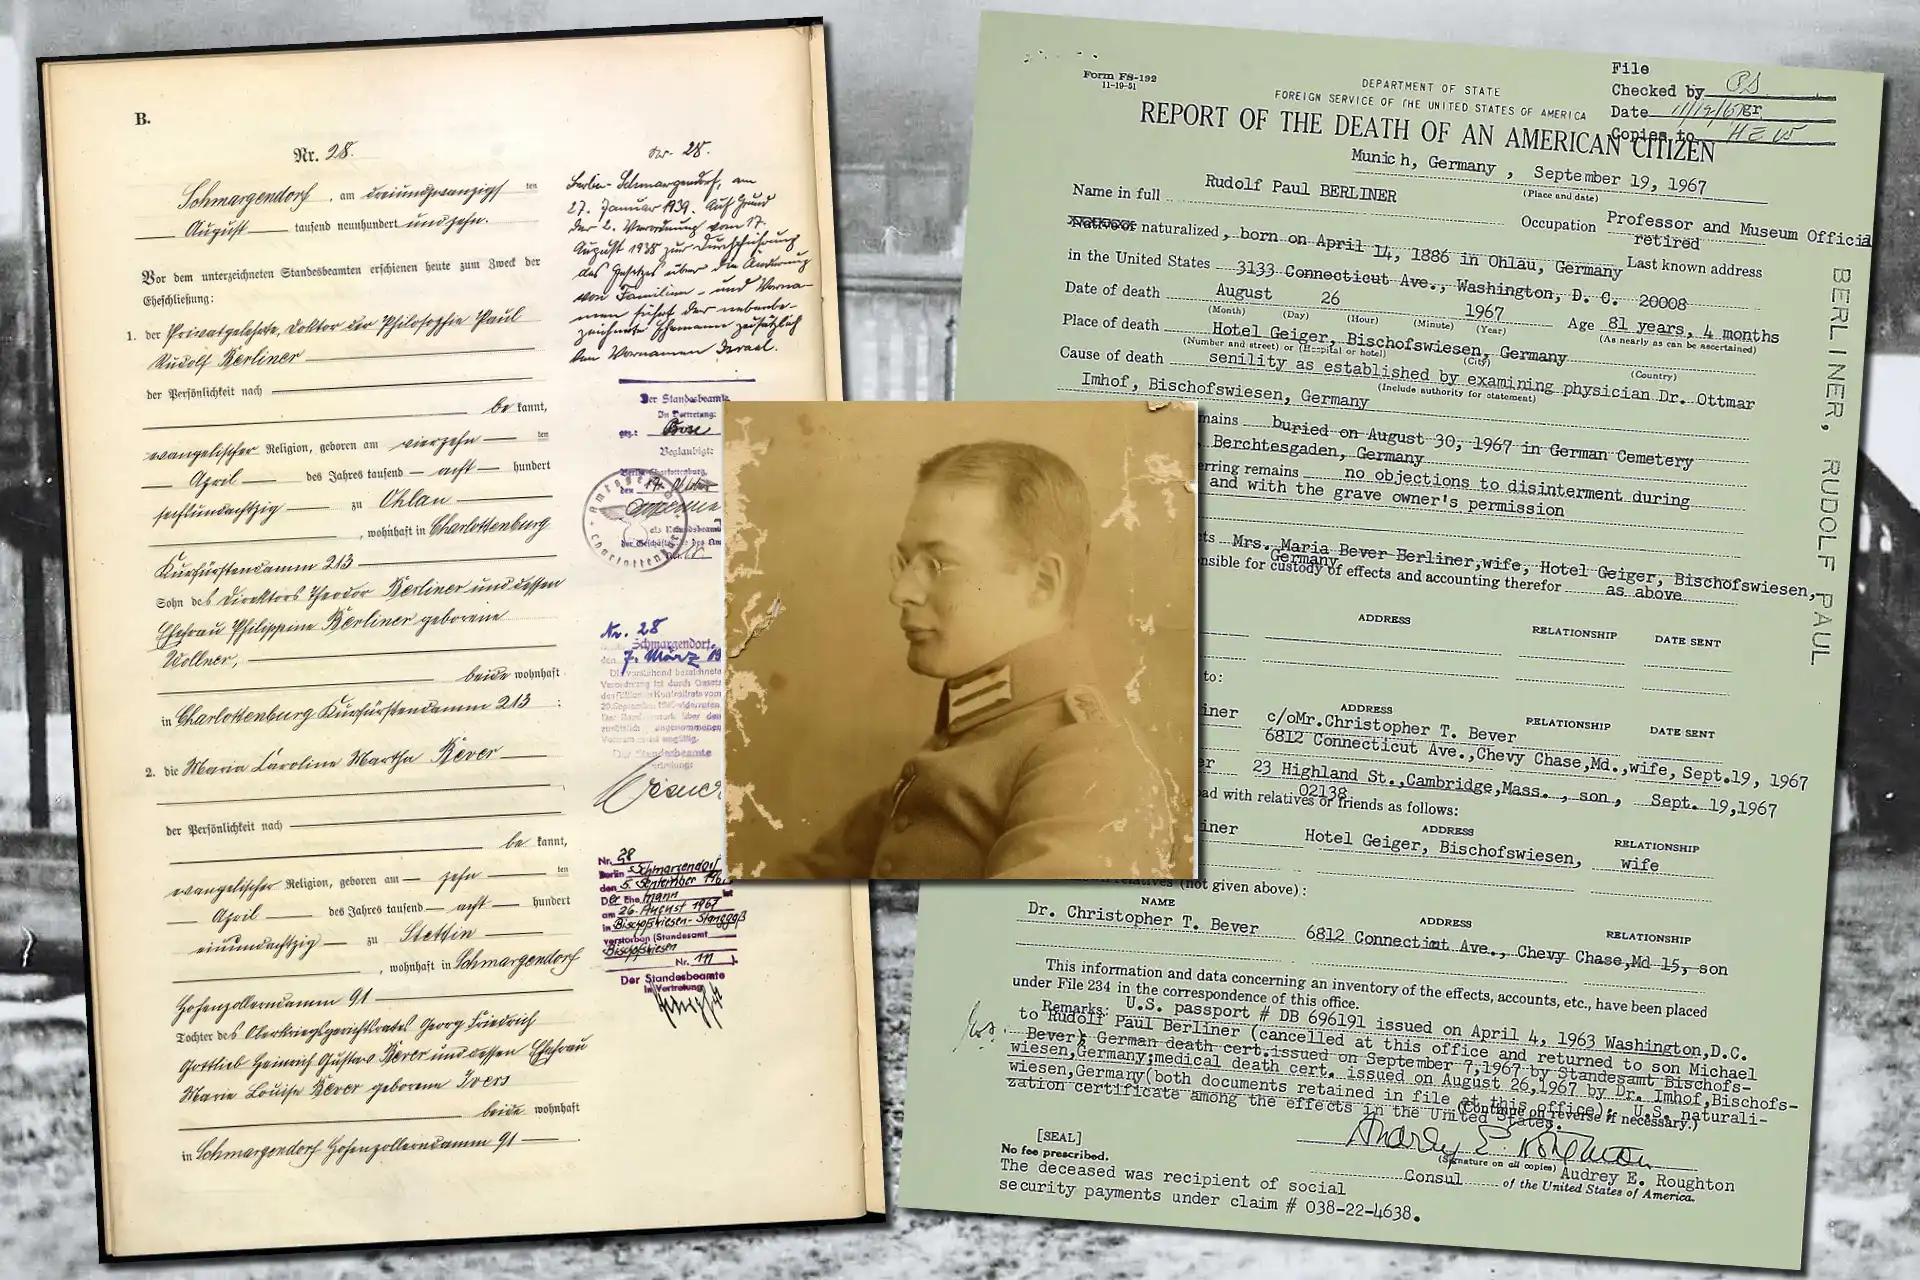 B.
Nr. 28.
Schmargendorf, am dreiundzwanzigsten
August tausend neunhundert und zehn.
Vor dem unterzeichneten Standesbeamten erschienen heute zum Zweck der
Eheschließung:
1. der Privatgelehrte, Doktor der Philosophie Paul
Rudolf Berliner
der Persönlichkeit nach
be kannt,
evangelischer Religion, geboren am vierzehn ten
April des Jahres tausend acht hundert
sechsundachtzig zu Ohlau
, wohnhaft in Charlottenburg
Kurfürstendamm 213
Sohn des Direktors Theodor Berliner und dessen
Ehefrau Philippine Berliner geborene
Wollner,
beide wohnhaft
in Charlottenburg Kurfürstendamm 213 :
2. die Maria Caroline Martha Bever
der Persönlichkeit nach
be kannt,
evangelischer Religion, geboren am zehn ten
April des Jahres tausend acht hundert
einundachtzig zu Stettin
, wohnhaft in Schmargendorf
Hohenzollerndamm 91
Tochter des Oberkriegsgerichtsrates Georg Friedrich
Gottlieb Heinrich Gustav Bever und dessen Ehefrau
Marie Louise Bever geborene Ivers
beide wohnhaft
in Schmargendorf Hohenzollerndamm 91
Nr. 28.
Berlin-Schmargendorf, am
27. Januar 1939. Auf Grund
der 2. Verordnung vom 17.
August 1938 zur Durchführung
des Gesetzes über die Änderung
von Familien- und Vorna-
men führt der nebenbe-
zeichnete Ehemann zusätzlich
den Vornamen Israel.
Der Standesbeamte
In Vertretung:
gez:
Beglaubigt:
Berlin-Charlottenburg,
den 17. Oktober
Amtsgericht Charlottenburg
Nr. 28
Schmargendorf,
den 7. März 19
Der Standesbeamte
Nr. 28
Berlin Schmargendorf
den 5. September 196
Der Ehemann ist
am 26. August 1967
in Bischofswiesen-Stanggaß
verstorben (Standesamt
Bischofswiesen
Nr. 111 ).
Der Standesbeamte
In Vertretung
Form FS-192
11-19-51
DEPARTMENT OF STATE
FOREIGN SERVICE OF THE UNITED STATES OF AMERICA
REPORT OF THE DEATH OF AN AMERICAN CITIZEN
File
Checked by
Date 11/12/67 gr
Copies to HEW
Munich, Germany , September 19, 1967
(Place and date)
Name in full Rudolf Paul BERLINER Occupation Professor and Museum Official
retired
Native of naturalized, born on April 14, 1886 in Ohlau, Germany Last known address
in the United States 3133 Connecticut Ave., Washington, D. C. 20008
Date of death August 26 1967 Age 81 years, 4 months
(Month) (Day) (Hour) (Minute) (Year) (As nearly as can be ascertained)
Place of death Hotel Geiger, Bischofswiesen, Germany
(Number and street) or (Hospital or hotel) (City) (Country)
Cause of death senility as established by examining physician Dr. Ottmar
(Include authority for statement)
Imhof, Bischofswiesen, Germany
mains buried on August 30, 1967 in German Cemetery
Berchtesgaden, Germany
rring remains no objections to disinterment during
and with the grave owner's permission
cts Mrs. Maria Bever Berliner, wife, Hotel Geiger, Bischofswiesen,
Germany
nsible for custody of effects and accounting therefor as above
ADDRESS RELATIONSHIP DATE SENT
to:
ADDRESS RELATIONSHIP DATE SENT
iner c/oMr.Christopher T. Bever
6812 Connecticut Ave.,Chevy Chase,Md.,wife, Sept.19, 1967
er 23 Highland St.,Cambridge,Mass. , son , Sept. 19,1967
02138
oad with relatives or friends as follows:
ADDRESS RELATIONSHIP
iner Hotel Geiger, Bischofswiesen, wife
relatives (not given above):
NAME ADDRESS RELATIONSHIP
Dr. Christopher T. Bever 6812 Connecticut Ave., Chevy Chase,Md 15, son
This information and data concerning an inventory of the effects, accounts, etc., have been placed
under File 234 in the correspondence of this office.
Remarks: U.S. passport # DB 696191 issued on April 4, 1963 Washington,D.C.
to Rudolf Paul Berliner (cancelled at this office and returned to son Michael
Bever); German death cert.issued on September 7,1967 by Standesamt Bischofs-
wiesen,Germany;medical death cert. issued on August 26,1967 by Dr. Imhof,Bischofs-
wiesen,Germany(both documents retained in file at this office); U.S. naturali-
zation certificate among the effects in the United States.
(Continue on reverse if necessary.)
[SEAL]
No fee prescribed.
(Signature on all copies) Audrey E. Roughton
Consul of the United States of America.
The deceased was recipient of social
security payments under claim # 038-22-4638.
BERLINER, RUDOLF PAUL